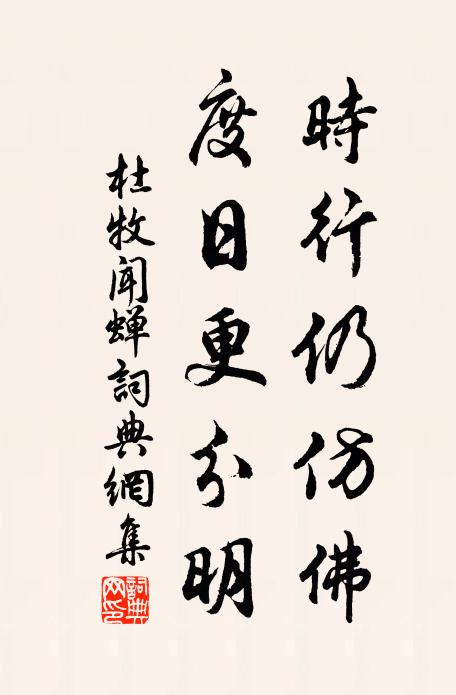 時行仍仿佛
度日更分明
杜牧闻蝉詞典網集
詞典网印